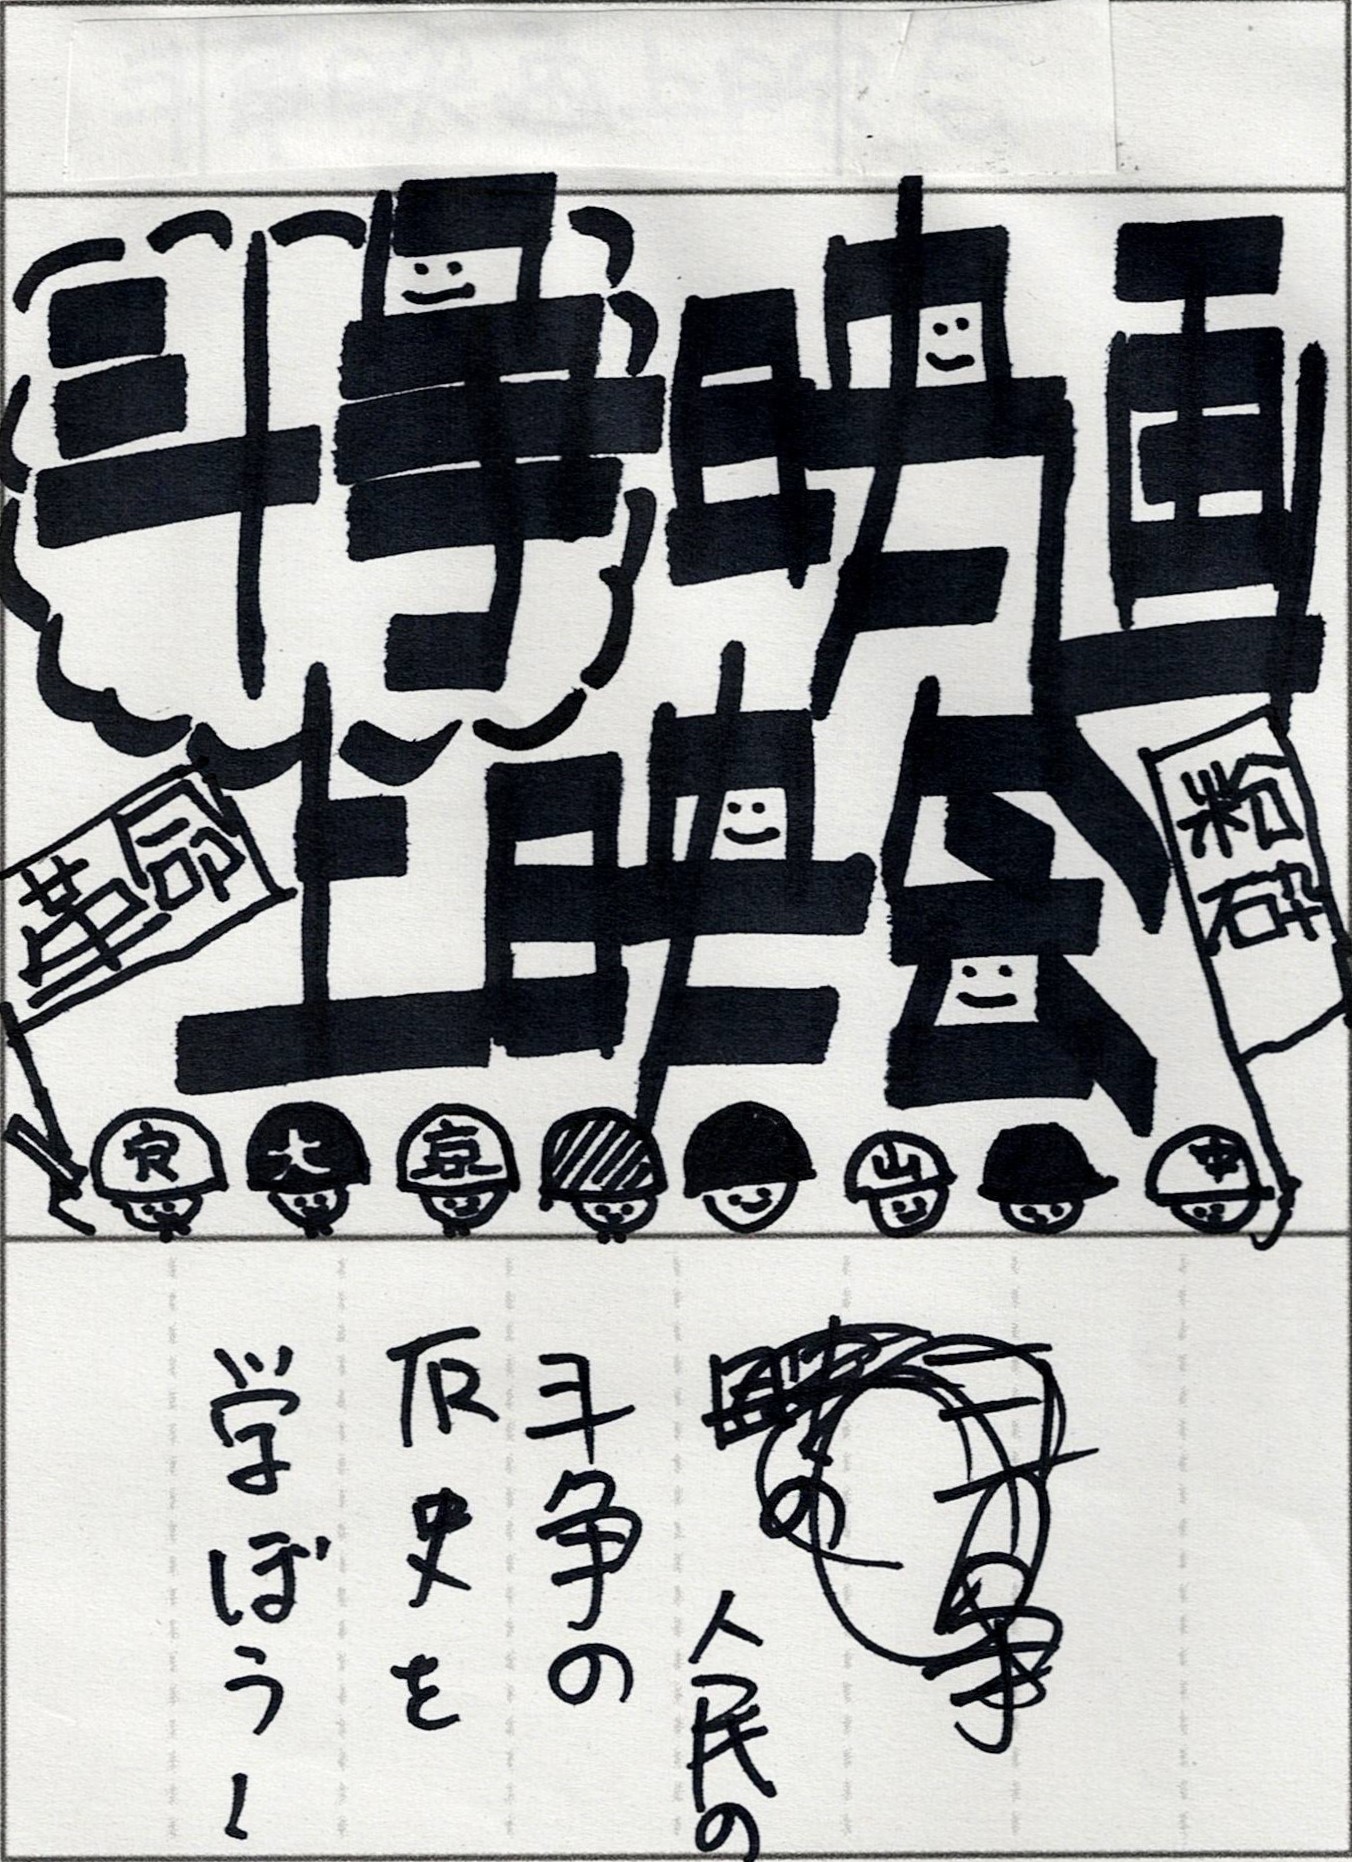 斗争映画
上映会
革命
粉砕
大
京
山
中
人民の
斗争の
歴史を
学ぼう！